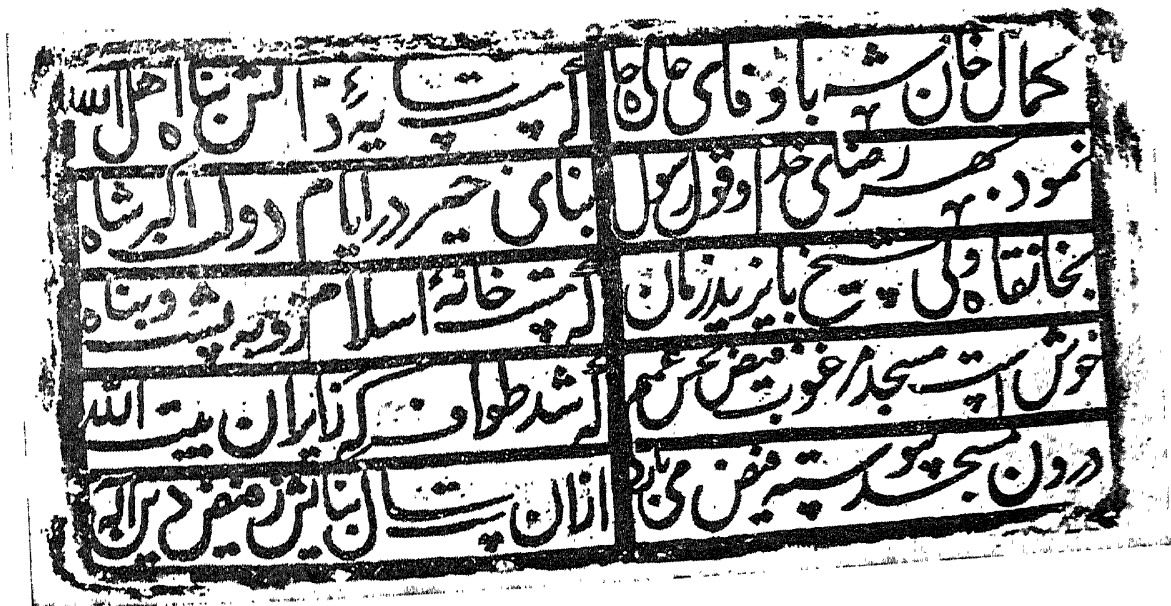 کمال خان شه با وفای عالی جاه
که هست پایهٔ ذاتش پناه اهل الله
نمود بهر رضای خدا و قول رسول
بنای خیر در ایام دولت اکبر شاه
بخانقاه ولی شیخ بایزید زمان
که هست خانهٔ اسلام زو به پشت و پناه
خوش است مسجد مرغوب فیض بخش عمیم
که شد طواف گه زایران بیت الله
درون مسجد پیوسته فیض می بارد
ازان است سال بنایش ز فیض